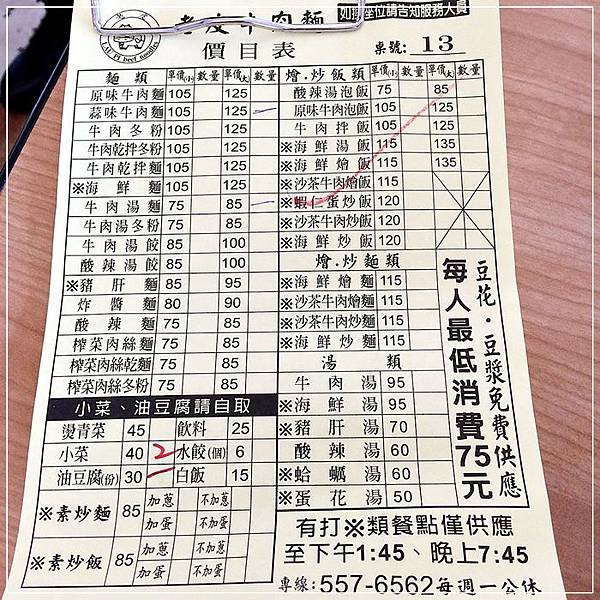 老皮牛肉麵
LAU PI beef noodles
如換座位請告知服務人員
價目表
桌號: 13
麵類 單價(小) 數量 單價(大) 數量
原味牛肉麵 105 125
蒜味牛肉麵 105 125 一
牛肉冬粉 105 125
牛肉乾拌冬粉 105 125
牛肉乾拌麵 105 125
※海鮮麵 105 125
牛肉湯麵 75 85 一
牛肉湯冬粉 75 85
牛肉湯餃 85 100
酸辣湯餃 85 100
※豬肝麵 85 95
炸醬麵 80 90
酸辣麵 75 85
榨菜肉絲麵 75 85
榨菜肉絲乾麵 75 85
榨菜肉絲冬粉 75 85
小菜、油豆腐請自取
燙青菜 45 飲料 25
小菜 40 2 水餃(個) 6
油豆腐(份) 30 一 白飯 15
※素炒麵 85 加蔥 不加蔥
加蛋 不加蛋
※素炒飯 85 加蔥 不加蔥
加蛋 不加蛋
燴.炒飯類 單價(小) 數量 單價(大) 數量
酸辣湯泡飯 75 85
原味牛肉泡飯 105 125
牛肉拌飯 105 125
※海鮮湯飯 115 135
※海鮮燴飯 115 135
※沙茶牛肉燴飯 115
※蝦仁蛋炒飯 120
※沙茶牛肉炒飯 120
※海鮮炒飯 120
燴.炒麵類
※海鮮燴麵 115
※沙茶牛肉燴麵 115
※沙茶牛肉炒麵 115
※海鮮炒麵 115
湯類
牛肉湯 95
※海鮮湯 95
※豬肝湯 70
酸辣湯 60
※蛤蠣湯 60
※蛋花湯 50
豆花.豆漿免費供應
每人最低消費75元
有打※類餐點僅供應
至下午1:45、晚上7:45
專線: 557-6562 每週一公休